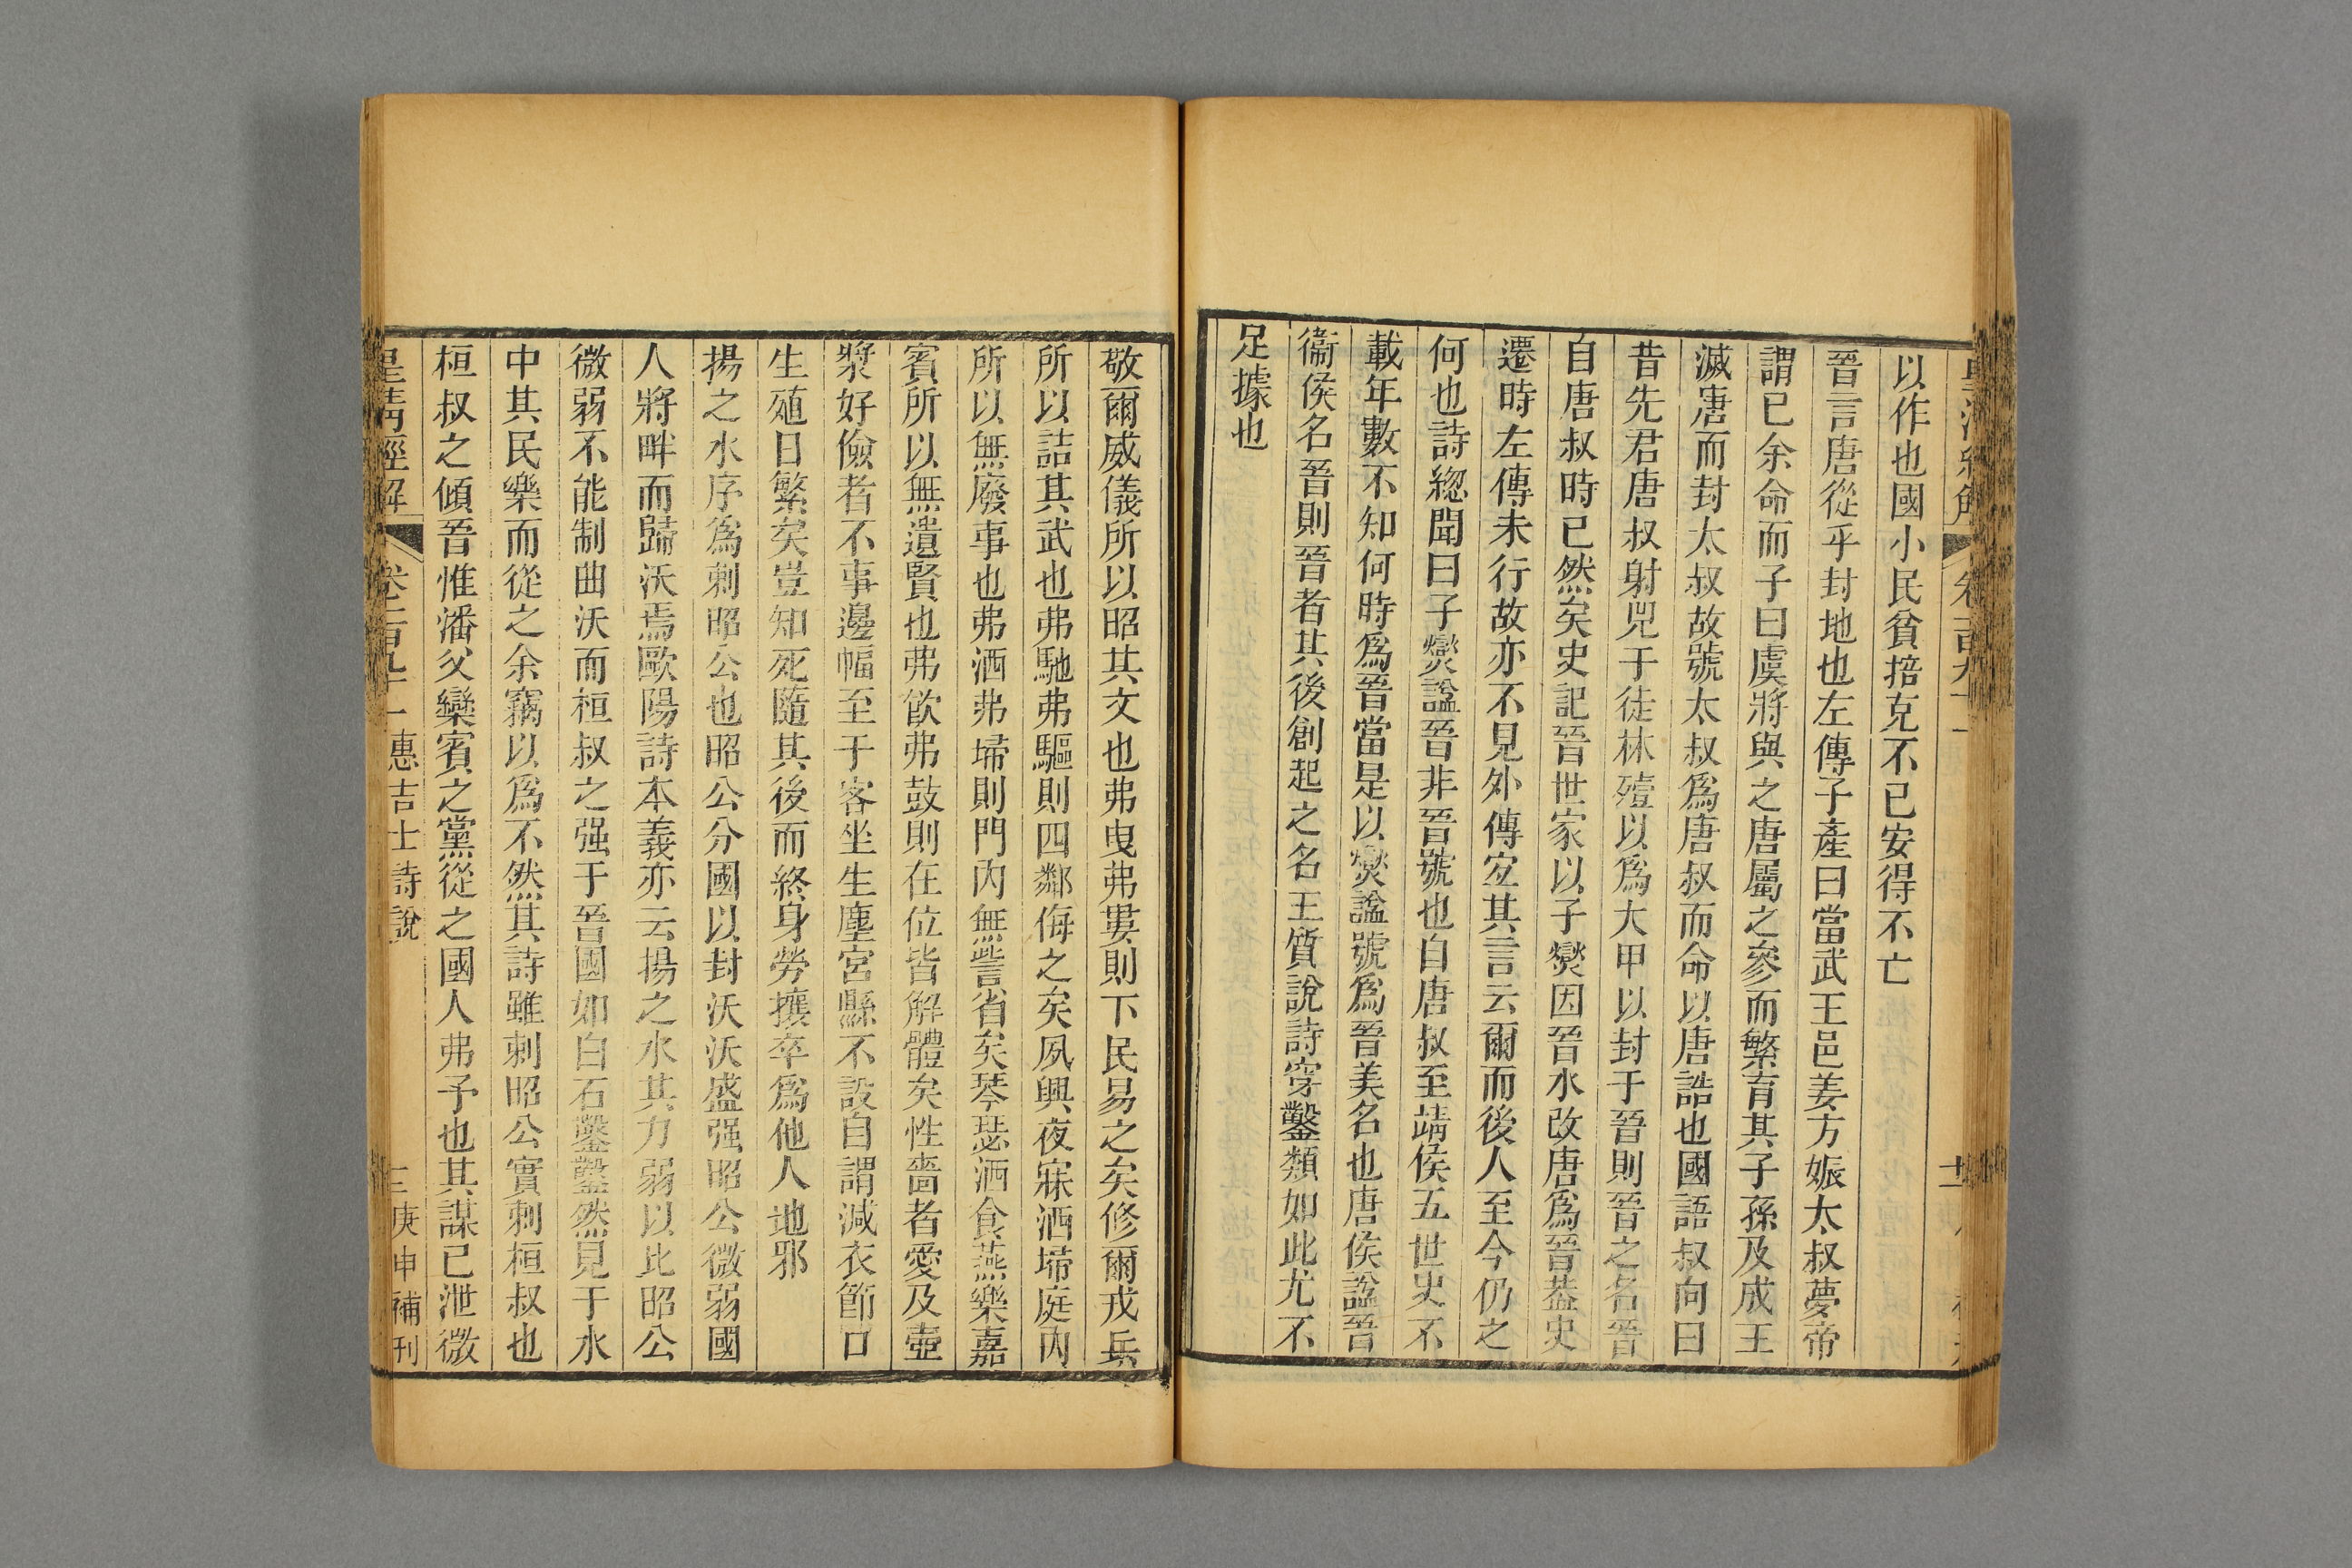 以作也國小民貧掊克不已安得不亡
晉言唐從乎封地也左傳子產曰當武王邑姜方娠太叔夢帝
謂已余命而子曰虞將與之唐屬之參而繁育其子孫及成王
滅唐而封太叔故號太叔爲唐叔而命以唐誥也國語叔向曰
昔先君唐叔射兕于徒林殪以爲大甲以封于晉則晉之名晉
自唐叔時已然矣史記晉世家以子燮因晉水改唐爲晉葢史
遷時左傳未行故亦不見外傳宐其言云爾而後人至今仍之
何也詩緫聞曰子燮諡晉非晉號也自唐叔至靖侯五世史不
載年數不知何時爲晉當是以燮諡號爲晉美名也唐侯諡晉
衞侯名晉則晉者其後創起之名王質說詩穿鑿類如此尤不
足據也
敬爾威儀所以昭其文也弗曳弗婁則下民易之矣修爾戎兵
所以詰其武也弗馳弗驅則四鄰侮之矣夙興夜寐洒埽庭內
所以無廢事也弗洒弗埽則門內無訾省矣琴瑟酒食燕樂嘉
賓所以無遺賢也弗飲弗鼓則在位皆解體矣性嗇者愛及壺
漿好儉者不事邊幅至于客坐生塵宮縣不設自謂減衣節口
生殖日繁矣豈知死隨其後而終身勞攘卒爲他人地邪
揚之水序爲刺昭公也昭公分國以封沃沃盛强昭公微弱國
人將畔而歸沃焉歐陽詩本義亦云揚之水其力弱以比昭公
微弱不能制曲沃而桓叔之强于晉國如白石鑿鑿然見于水
中其民樂而從之余竊以爲不然其詩雖刺昭公實刺桓叔也
桓叔之傾晉惟潘父欒賓之黨從之國人弗予也其謀已泄微
皇清經解 卷二百九十一惠吉士詩說 三 庚申補刊